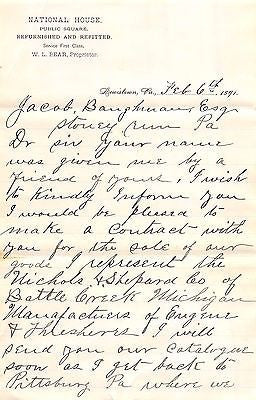 NATIONAL HOUSE,
PUBLIC SQUARE,
REFURNISHED AND REFITTED.
Service First Class.
W. L. BEAR, Proprietor.
Lewistown, Pa., Feb 6th 1891.
Jacob, Baughman, Esq
Stoney run Pa
Dr sir your name
was given me by a
friend of yours. I wish
to kindly Inform you
I would be pleased to
make a Contract with
you for the sale of our
goods I represent the
Nichols & Shepard Co. of
Battle Creek Michigan
Manafactuers of Engene
& Threshers I will
send you our Catalogue
soon as I get back to
Pittsburg Pa where we